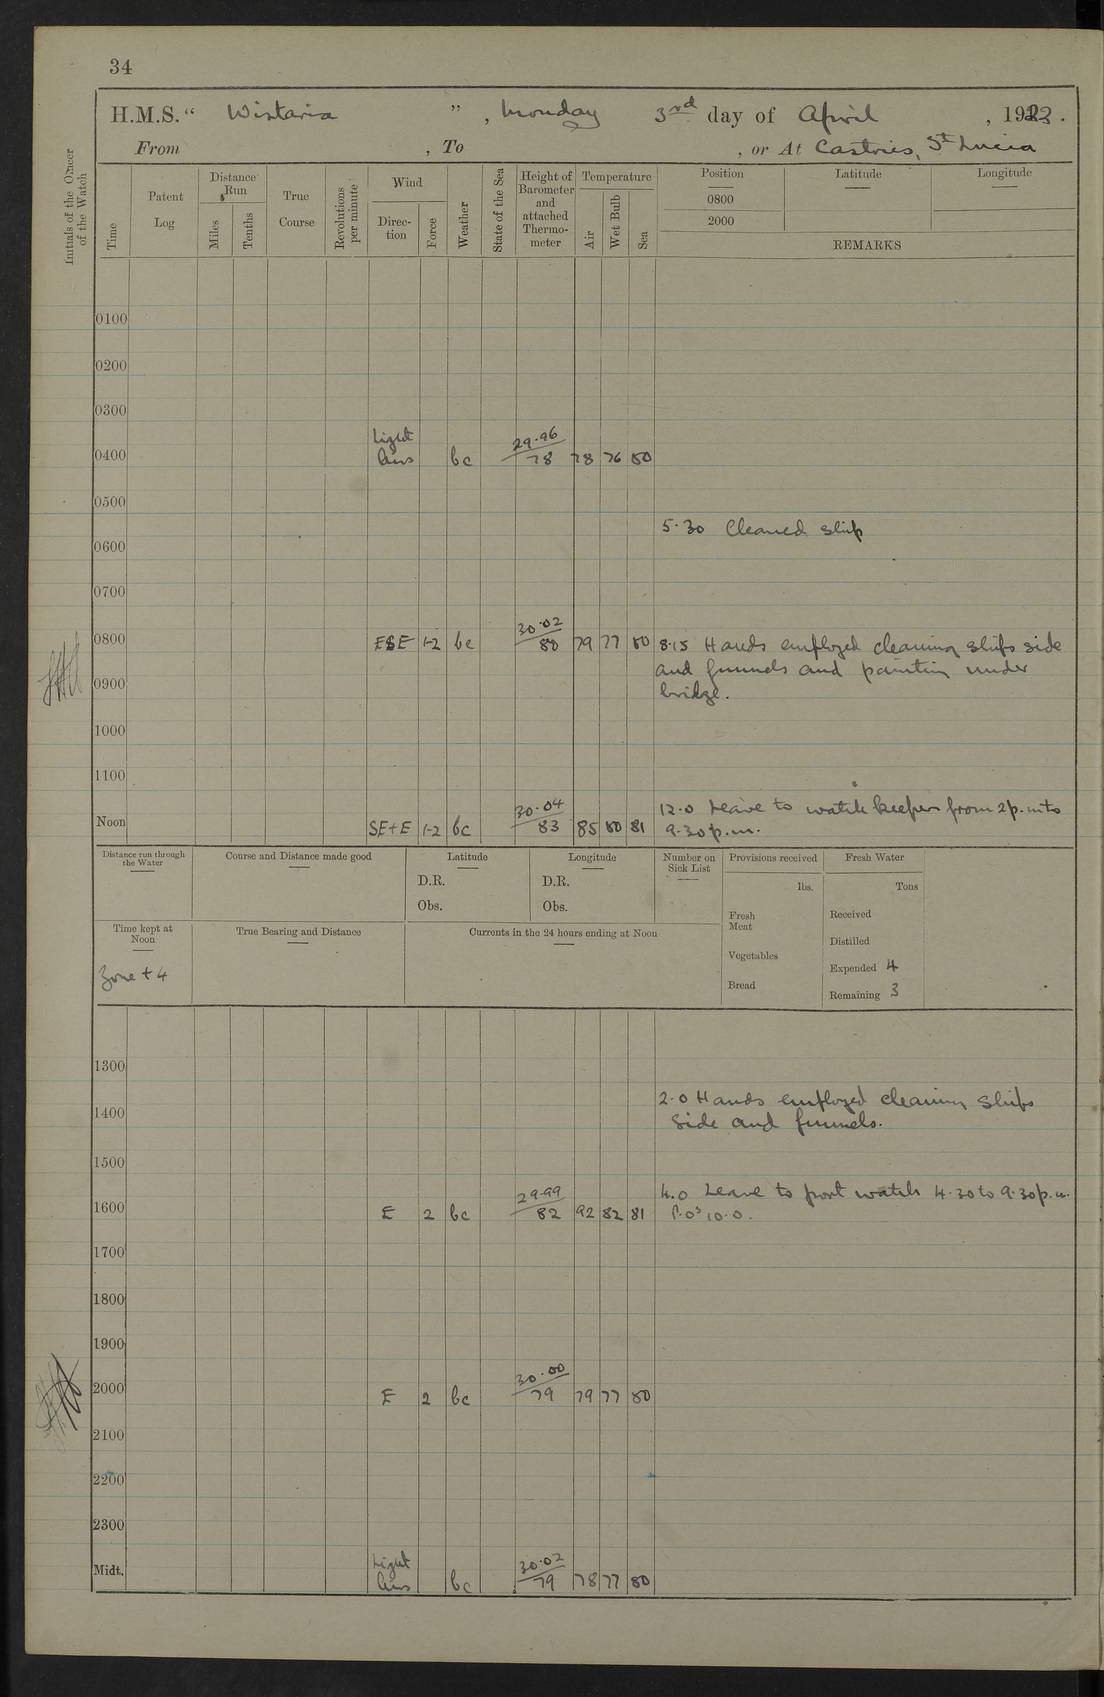 34
H.M.S. “ Wistaria ” , Monday 3rd day of April , 1933.
From , To , or At Castries, St Lucia
Initials of the Officer of the Watch
Time
Patent Log
Distance Run
Miles
Tenths
True Course
Revolutions per minute
Wind
Direc-tion
Force
Weather
State of the Sea
Height of Barometer and attached Thermo-meter
Temperature
Air
Wet Bulb
Sea
Position
0800
2000
Latitude
Longitude
REMARKS
0100
0200
0300
Light 29.96
0400 Airs bc 78 78 76 80
0500
5.30 Cleaned ship
0600
0700
30.02
0800 ESE 1-2 bc 80 79 77 80 8.15 Hands employed cleaning ships side
and funnels and painting under
0900
bridge.
1000
1100
30.04 12.0 Leave to watch keepers from 2 p.m to
Noon SE+E 1-2 bc 83 85 80 81 9.30 p.m.
Distance run through the Water
Course and Distance made good
Latitude
D.R.
Obs.
Longitude
D.R.
Obs.
Number on Sick List
Provisions received
lbs.
Fresh Meat
Vegetables
Bread
Fresh Water
Tons
Received
Distilled
Expended 4
Remaining 3
Time kept at Noon
Zone + 4
True Bearing and Distance
Currents in the 24 hours ending at Noon
1300
2.0 Hands employed cleaning ships
1400
side and funnels.
1500
29.99 4.0 Leave to port watch 4.30 to 9.30 p.m.
1600 E 2 bc 82 92 82 81 P.Os 10.0.
1700
1800
1900
30.00
2000 E 2 bc 79 79 77 80
2100
2200
2300
Light 30.02
Midt. Airs bc 79 78 77 80